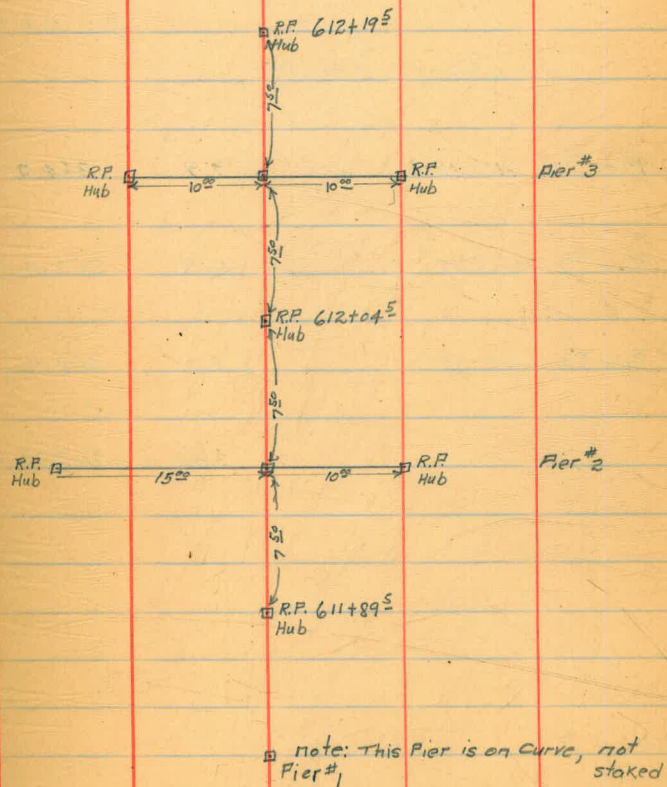 R.P. 612+19⁵
Hub
7⁵⁰
R.P. Hub
10⁰⁰
10⁰⁰
R.P. Hub
Pier #3
7⁵⁰
R.P. 612+04⁵
Hub
7⁵⁰
R.P. Hub
15⁰⁰
10⁰⁰
R.P. Hub
Pier #2
7⁵⁰
R.P. 611+89⁵
Hub
note: This Pier is on Curve, not staked
Pier #1